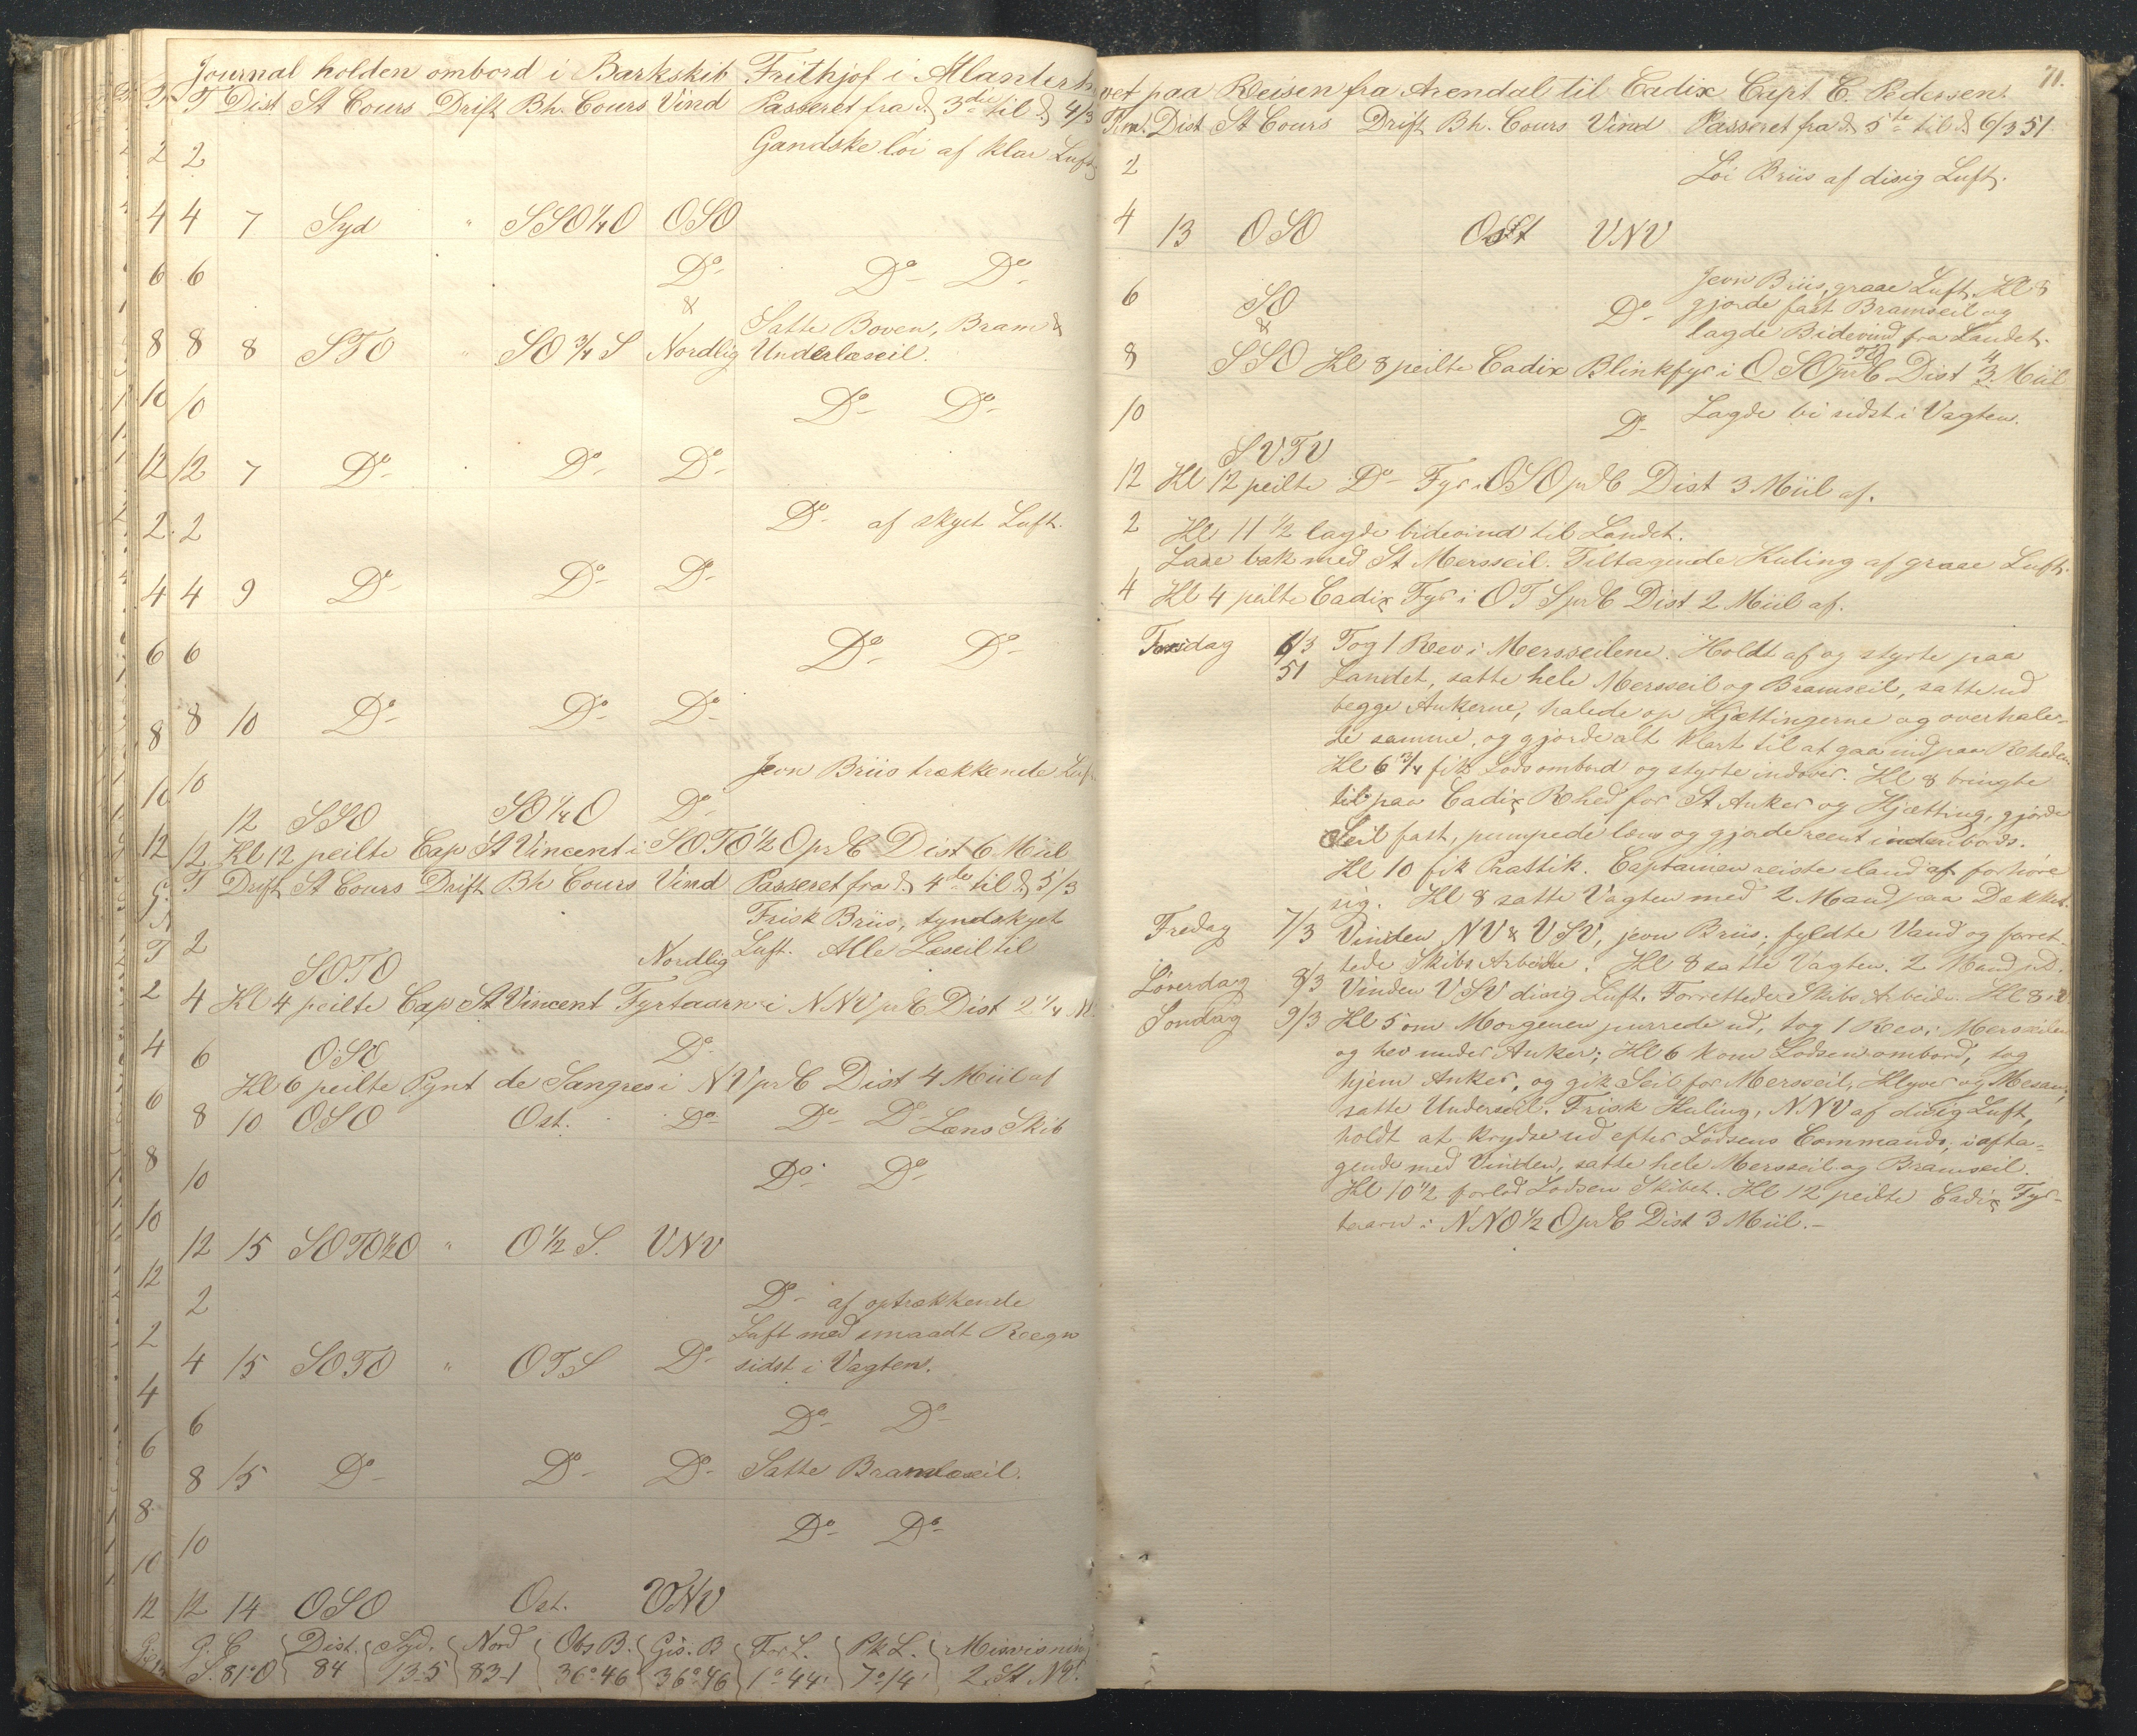 Journal holden ombord i Barkskib Frithjof i Atlanterh
T Dist St Cours Drift Bh. Cours Vind Passeret fra d 3die til d 4/3
2 2 Gandske löi af klar Luft
4 4 7 Syd " SSO¼O OSO
6 6 Do Do Do
&
Satte Boven, Bram &
8 8 8 STO " SO¾S Nordlig Underlæseil.
10 10 Do Do
12 12 7 Do Do Do
2 2 Do af skyet Luft.
4 4 9 Do Do Do
6 6 Do Do
8 8 10 Do Do Do
10 10 Jevn Briis trækkende Luft
12 SSO SO¼O Do
12 12 Kl 12 peilte Cap St Vincent i SOTO½O pr C Dist 6 Miil
T Drift St Cours Drift Bh Cours Vind Passeret fra d 4de til d 5/3
Frisk Briis, tyndskyet
2 Luft. Alle Læseil til
SOTO Nordlig
2 4 Kl 4 peilte Cap St Vincent Fyrtaarn i NNV pr C Dist 2¼ M.
4 6 OSO Do
Kl 6 peilte Pynt de Sangres i NV pr C Dist 4 Miil af
6 8 10 OSO Ost. Do Do Do Læns Skib
8 10 Do Do
10 12 15 SOTO½O " O½S. VNV
12 2 Do af optrækkende
2 Luft med smaadt Regn
4 15 SOTO " OTS Do sidst i Vagten.
4 6 Do Do
6 8 15 Do Do Do Satte Bramlæseil.
8 10 Do Do
10
12 12 14 OSO Ost. VNV
G. C Dist. Syd. Nord Obs B. Gis. B For L. Pk L. Misvisning
S. 81°O 84 13-5 83-1 36°46 36°46 1°44' 7°14' 2 St NV.
71.
vet paa Reisen fra Arendal til Cadix Capt C. Pedersen.
Tim. Dist St Cours Drift Bh. Cours Vind Passeret fra d 5te til d 6/3 51
2 Löi Briis af disig Luft.
4 13 OSO Ost VNV
Jevn Briis, graae Luft. Kl 8
6 SO Do gjorde fast Bramseil og
& lagde Bidevind fra Landet.
8 SSO Kl 8 peilte Cadix Blinkfyr i OSOTO pr C Dist 4 3. Miil
10 Do Lagde bi sidst i Vagten.
SVTV
12 Kl 12 peilte Do Fyr i OSO pr C Dist 3 Miil af.
2 Kl 11½ lagde bidevind til Landet.
Laae bak med St Mersseil. Tiltagende Kuling af graae Luft.
4 Kl 4 peilte Cadix Fyr i OTS pr C Dist 2 Miil af.
Torsdag 6/3 Tog 1 Rev i Mersseilene. Holdt af og styrte paa
51 Landet, satte hele Mersseil og Bramseil, satte ud
begge Ankerne, halede op Kjættingerne og overhale-
de samme, og gjorde alt klart til at gaa ind paa Rheden.
Kl 6¾ fik Lods ombord og styrte indover. Kl 8 bringte
til paa Cadix Rhed for St Anker og Kjætting, gjorde
Seil fast, pumpede læns og gjorde reent indenbords.
Kl 10 fik Prattik. Captainen reiste iland at forhöre
sig. Kl 8 satte Vagten med 2 Mand paa Dækket.
Fredag 7/3 Vinden NV & VSV, jevn Briis; fyldte Vand og forret-
tede Skibs Arbeide. Kl 8 satte Vagten. 2 Mand ad.
Löverdag 8/3 Vinden VSV disig Luft. Forrettede Skibs Arbeide. Kl 8
Söndag 9/3 Kl 5 om Morgenen purrede ud, tog 1 Rev i Mersseilene
og hev under Anker; Kl 6 kom Lodsen ombord, tog
hjem Anker, og gik Seil for Mersseil, Klyver og Mesan,
satte Underseil. Frisk Kuling, NNV af disig Luft,
holdt at krydse ud efter Lodsens Commando, i afta-
gende med Vinden, satte hele Mersseil og Bramseil.
Kl 10½ forlod Lodsen Skibet. Kl 12 peilte Cadix Fyr-
taarn i NNO½O pr C Dist 3 Miil.-